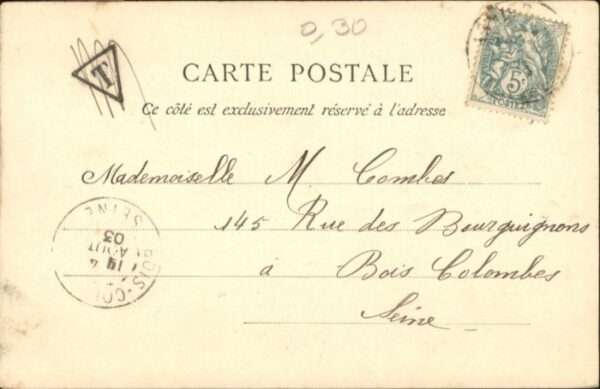 0,30
T
CARTE POSTALE
Ce côté est exclusivement réservé à l'adresse
5c
POSTES
Mademoiselle M. Combes
145 Rue des Bourguignons
à Bois Colombes
Seine
BOIS-COL
SEINE
AOUT
03